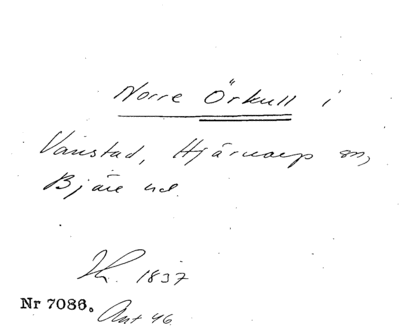 Norre Örkull i
Vanstad, Hjärnarp sn,
Bjäre hd.
1837
Nr 7086.
Ant 46